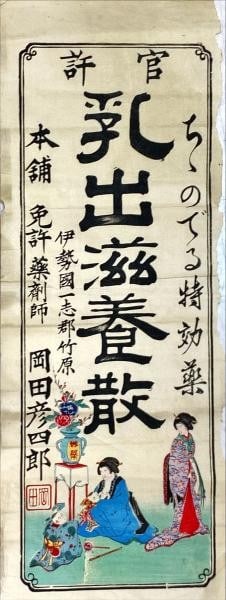 官許
ちゝのでる特効薬
乳出滋養散
伊勢國一志郡竹原
本舗 免許 薬剤師 岡田彦四郎
岡田